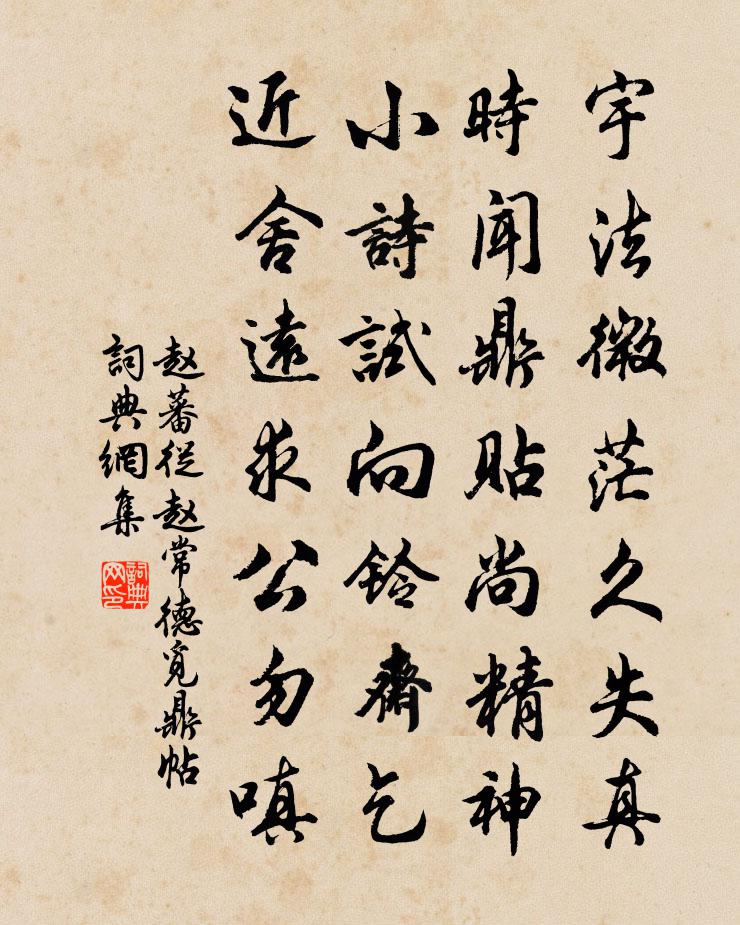 宇法微茫久失真
時聞鼎貼尚精神
小詩試向鈴齋乞
近舍遠求公勿嗔
赵蕃從赵常德覓鼎帖
詞典網集
詞典网印